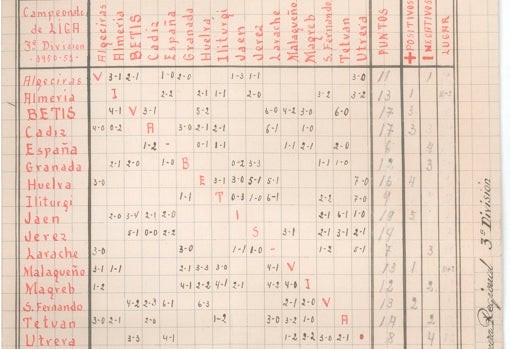 Campeonato de LIGA 3ª Division -1950-51- Algeciras Almeria BETIS Cadiz España Granada Huelva Iliturgi Jaen Jerez Larache Malagueño Maqreb S. Fernando Tetuan Utrera PUNTOS + POSITIVOS NEGATIVOS LUGAR
Algeciras V 3-1 2-1 1-0 2-0 1-3 1-1 3-0 11 1
Almeria I 2-2 2-1 1-1 2-0 3-2 3-2 13 1
BETIS 4-1 V 3-1 5-2 6-0 4-2 3-0 6-0 17 3
Cadiz 4-0 0-2 A 3-0 2-1 1-1 6-1 1-0 17 3
España 1-2 - 0-1 1-1 1-1 2-1 2-0 6 4
Granada 2-1 2-0 1-0 B 0-2 3-3 1-1 1-0 12 3
Huelva 3-0 E 3-1 3-0 5-1 5-1 7-0 16 4
Iliturgi 1-1 T 0-3 1-0 6-1 2-2 7-0 9
Jaen 2-0 3-4 2-1 2-0 I 2-1 6-1 1-0 19 5
Jerez 5-1 0-0 2-2 S 3-1 2-1 3-1 2-1 14
Larache 3-0 3-0 1-1 1-0 - 1-2 5-1 7 3
Malagueño 3-1 1-1 2-1 3-3 3-0 4-1 V 13 1
Maqreb 1-2 4-1 2-2 4-1 2-1 4-0 I 12 2
S. Fernando 4-2 2-3 6-1 6-3 2-1 2-0 V 13 2
Tetuan 3-0 2-1 2-0 1-2 3-0 3-2 1-0 A 14 2
Utrera 3-3 4-1 1-2 2-2 3-0 2-1 8 4
Regional 3ª Division